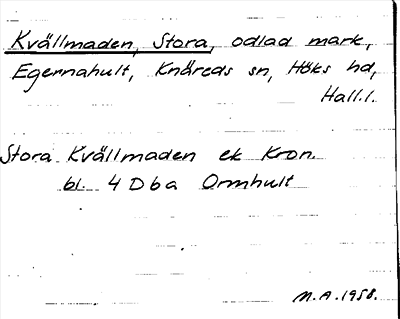 Kvällmaden, Stora, odlad mark,
Egernahult, Knäreds sn, Höks hd,
Hall.l.
Stora Kvällmaden ek Kron.
bl. 4 D b a Ormhult
M.A. 1958.